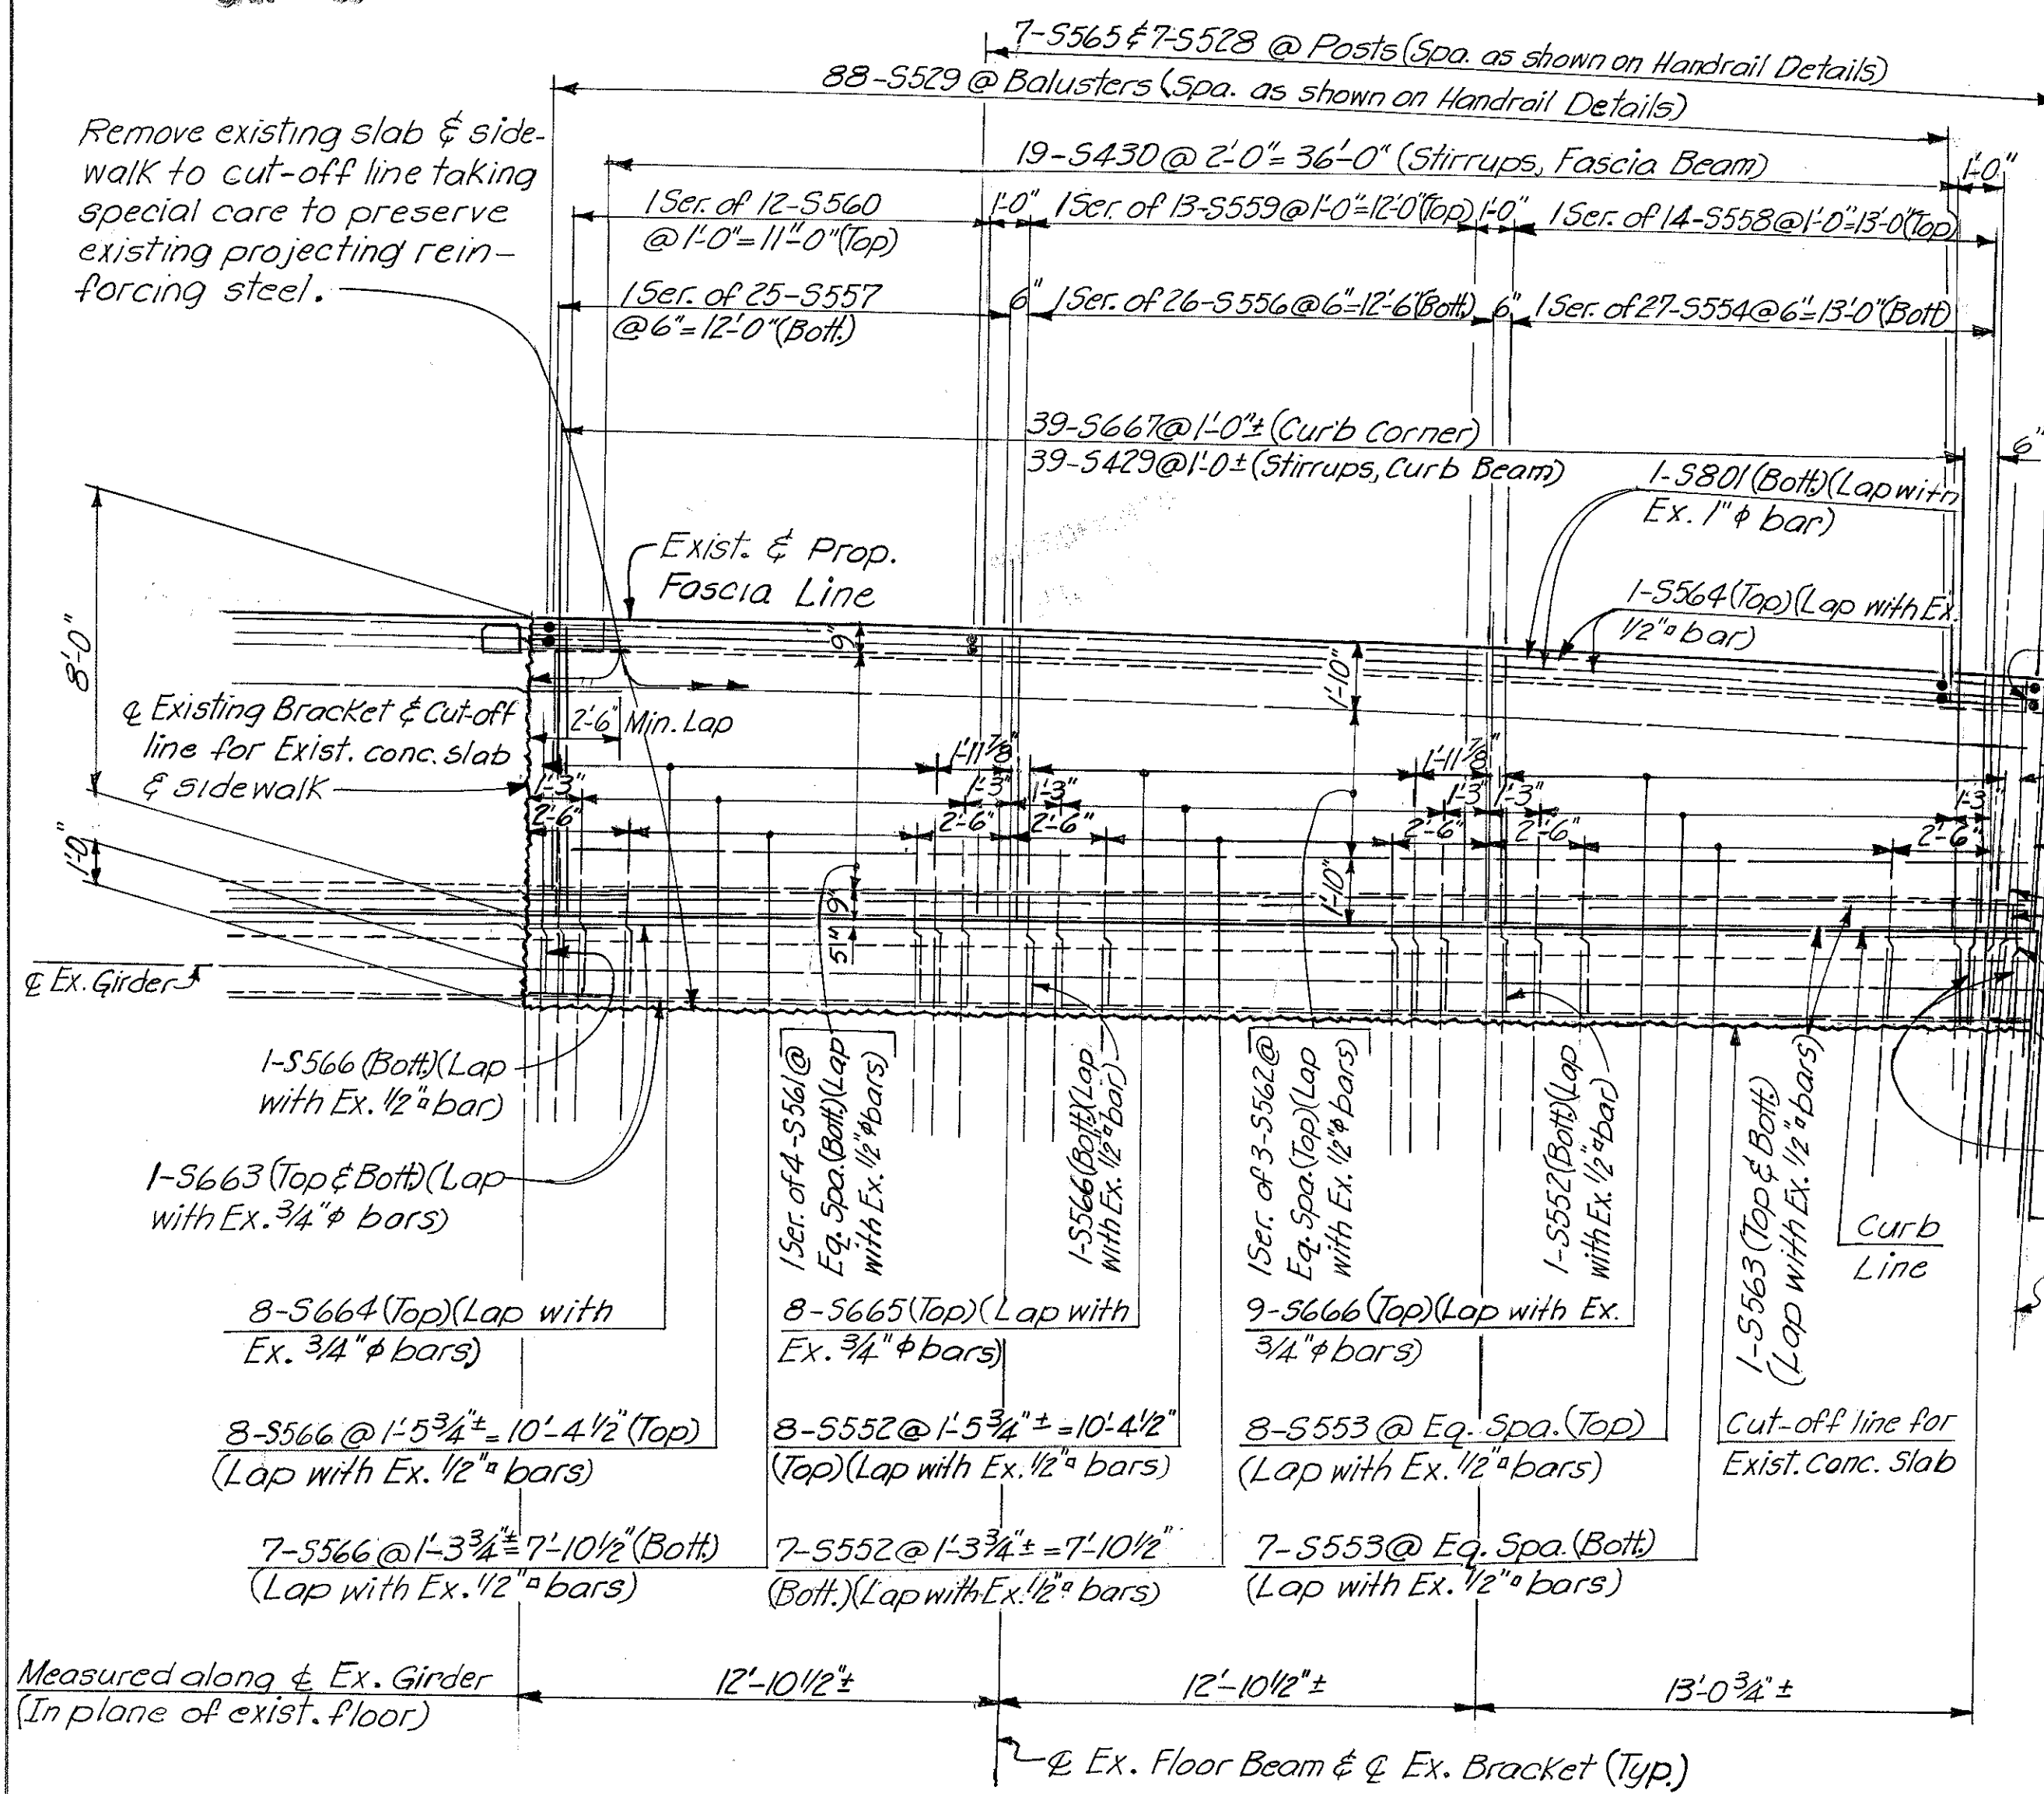 7-S565 & 7-S528 @ Posts (Spa. as shown on Handrail Details)
88-S529 @ Balusters (Spa. as shown on Handrail Details)
Remove existing slab & side-
walk to cut-off line taking
special care to preserve
existing projecting rein-
forcing steel.
19-S430 @ 2'-0" = 36'-0" (Stirrups, Fascia Beam)
1'-0"
1 Ser. of 12-S560
@ 1'-0" = 11"-0" (Top)
1'-0"
1 Ser. of 13-S559 @ 1'-0" = 12'-0" (Top)
1'-0"
1 Ser. of 14-S558 @ 1'-0" = 13'-0" (Top)
1 Ser. of 25-S557
@ 6" = 12'-0" (Bott.)
6"
1 Ser. of 26-S556 @ 6" = 12'-6" (Bott.)
6"
1 Ser. of 27-S554 @ 6" = 13'-0" (Bott)
39-S667 @ 1'-0" ± (Curb Corner)
39-S429 @ 1'-0 ± (Stirrups, Curb Beam)
6"
1-S801 (Bott.) (Lap with
Ex. 1" φ bar)
Exist. & Prop.
Fascia Line
1-S564 (Top) (Lap with Ex.
1/2" ▫ bar)
8'-0"
9"
1'-10"
℄ Existing Bracket & Cut-off
line for Exist. conc. slab
& sidewalk
2'-6" Min. Lap
1'-11 7/8"
1'-11 7/8"
1'-3"
1'-3"
1'-3"
1'-3"
1'-3"
1'-3"
2'-6"
2'-6"
2'-6"
2'-6"
2'-6"
2'-6"
1'-0"
9"
1'-10"
5"
℄ Ex. Girder
1-S566 (Bott.) (Lap
with Ex. 1/2" ▫ bar)
1-S663 (Top & Bott) (Lap
with Ex. 3/4" φ bars)
1 Ser. of 4-S561 @
Eq. Spa. (Bott.) (Lap
with Ex. 1/2" φ bars)
1-S566 (Bott) (Lap
with Ex. 1/2" ▫ bar)
1 Ser. of 3-S562 @
Eq. Spa. (Top) (Lap
with Ex. 1/2" φ bars)
1-S552 (Bott) (Lap
with Ex. 1/2" ▫ bar)
1-S563 (Top & Bott.)
(Lap with Ex. 1/2" ▫ bars)
Curb
Line
8-S664 (Top) (Lap with
Ex. 3/4" φ bars)
8-S665 (Top) (Lap with
Ex. 3/4" φ bars)
9-S666 (Top) (Lap with Ex.
3/4" φ bars)
8-S566 @ 1'-5 3/4" ± = 10'-4 1/2" (Top)
(Lap with Ex. 1/2" ▫ bars)
8-S552 @ 1'-5 3/4" ± = 10'-4 1/2"
(Top) (Lap with Ex. 1/2" ▫ bars)
8-S553 @ Eq. Spa. (Top)
(Lap with Ex. 1/2" ▫ bars)
Cut-off line for
Exist. Conc. Slab
7-S566 @ 1'-3 3/4" ± = 7'-10 1/2" (Bott.)
(Lap with Ex. 1/2" ▫ bars)
7-S552 @ 1'-3 3/4" ± = 7'-10 1/2"
(Bott.) (Lap with Ex. 1/2" ▫ bars)
7-S553 @ Eq. Spa. (Bott.)
(Lap with Ex. 1/2" ▫ bars)
Measured along ℄ Ex. Girder
(In plane of exist. floor)
12'-10 1/2" ±
12'-10 1/2" ±
13'-0 3/4" ±
℄ Ex. Floor Beam & ℄ Ex. Bracket (Typ.)